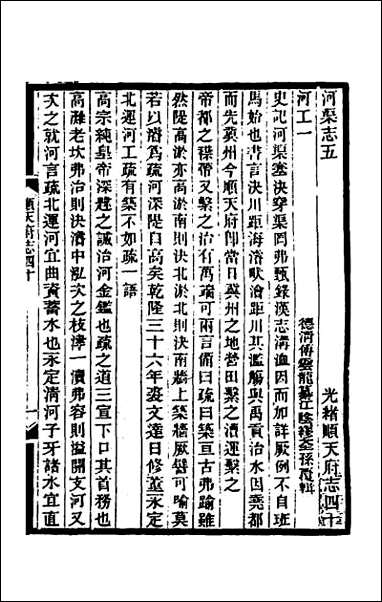 光緒順天府志四十
河渠志五
德清傅雲龍纂江陰繆荃孫覆輯
河工一
史記河渠塞決穿渠罔弗甄錄漢志溝洫因而加詳厥例不自班
馬始也書言決川距海濬畎澮距川其濫觴與禹貢治水因堯都
而先冀州今順天府卽當日冀州之地營田繫之漕運繫之
帝都之祲帝又繫之治有萬端可兩言僃曰疏曰築亘古弗踰雖
然隄高淤亦高淤南則決北淤北則決南牆上築牆厥譬可喻莫
若以濬爲疏河深隄自高矣乾隆三十六年裘文達日修葢永定
北運河工疏有築不如疏一語
高宗純皇帝深韙之誠治河金鑑也疏之道三宣下口其首務也
高灘老坎弗治則決濟中泓次之枝津一瀆弗容則溢開支河又
次之就河言疏北運河宜曲資蓄水也永定清河子牙諸水宜直
順天府志四十